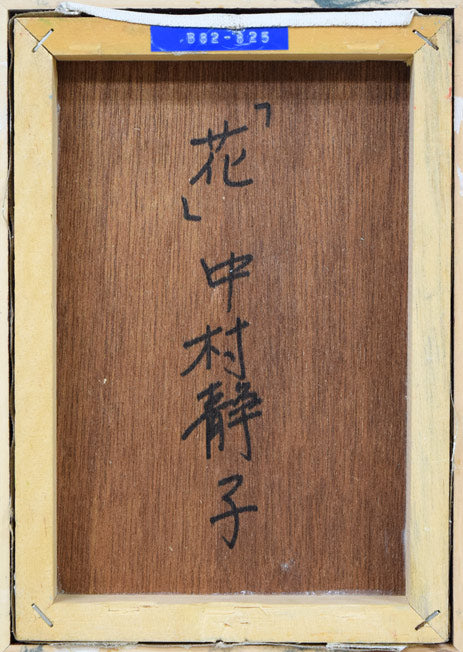 B82-825
「花」中村靜子